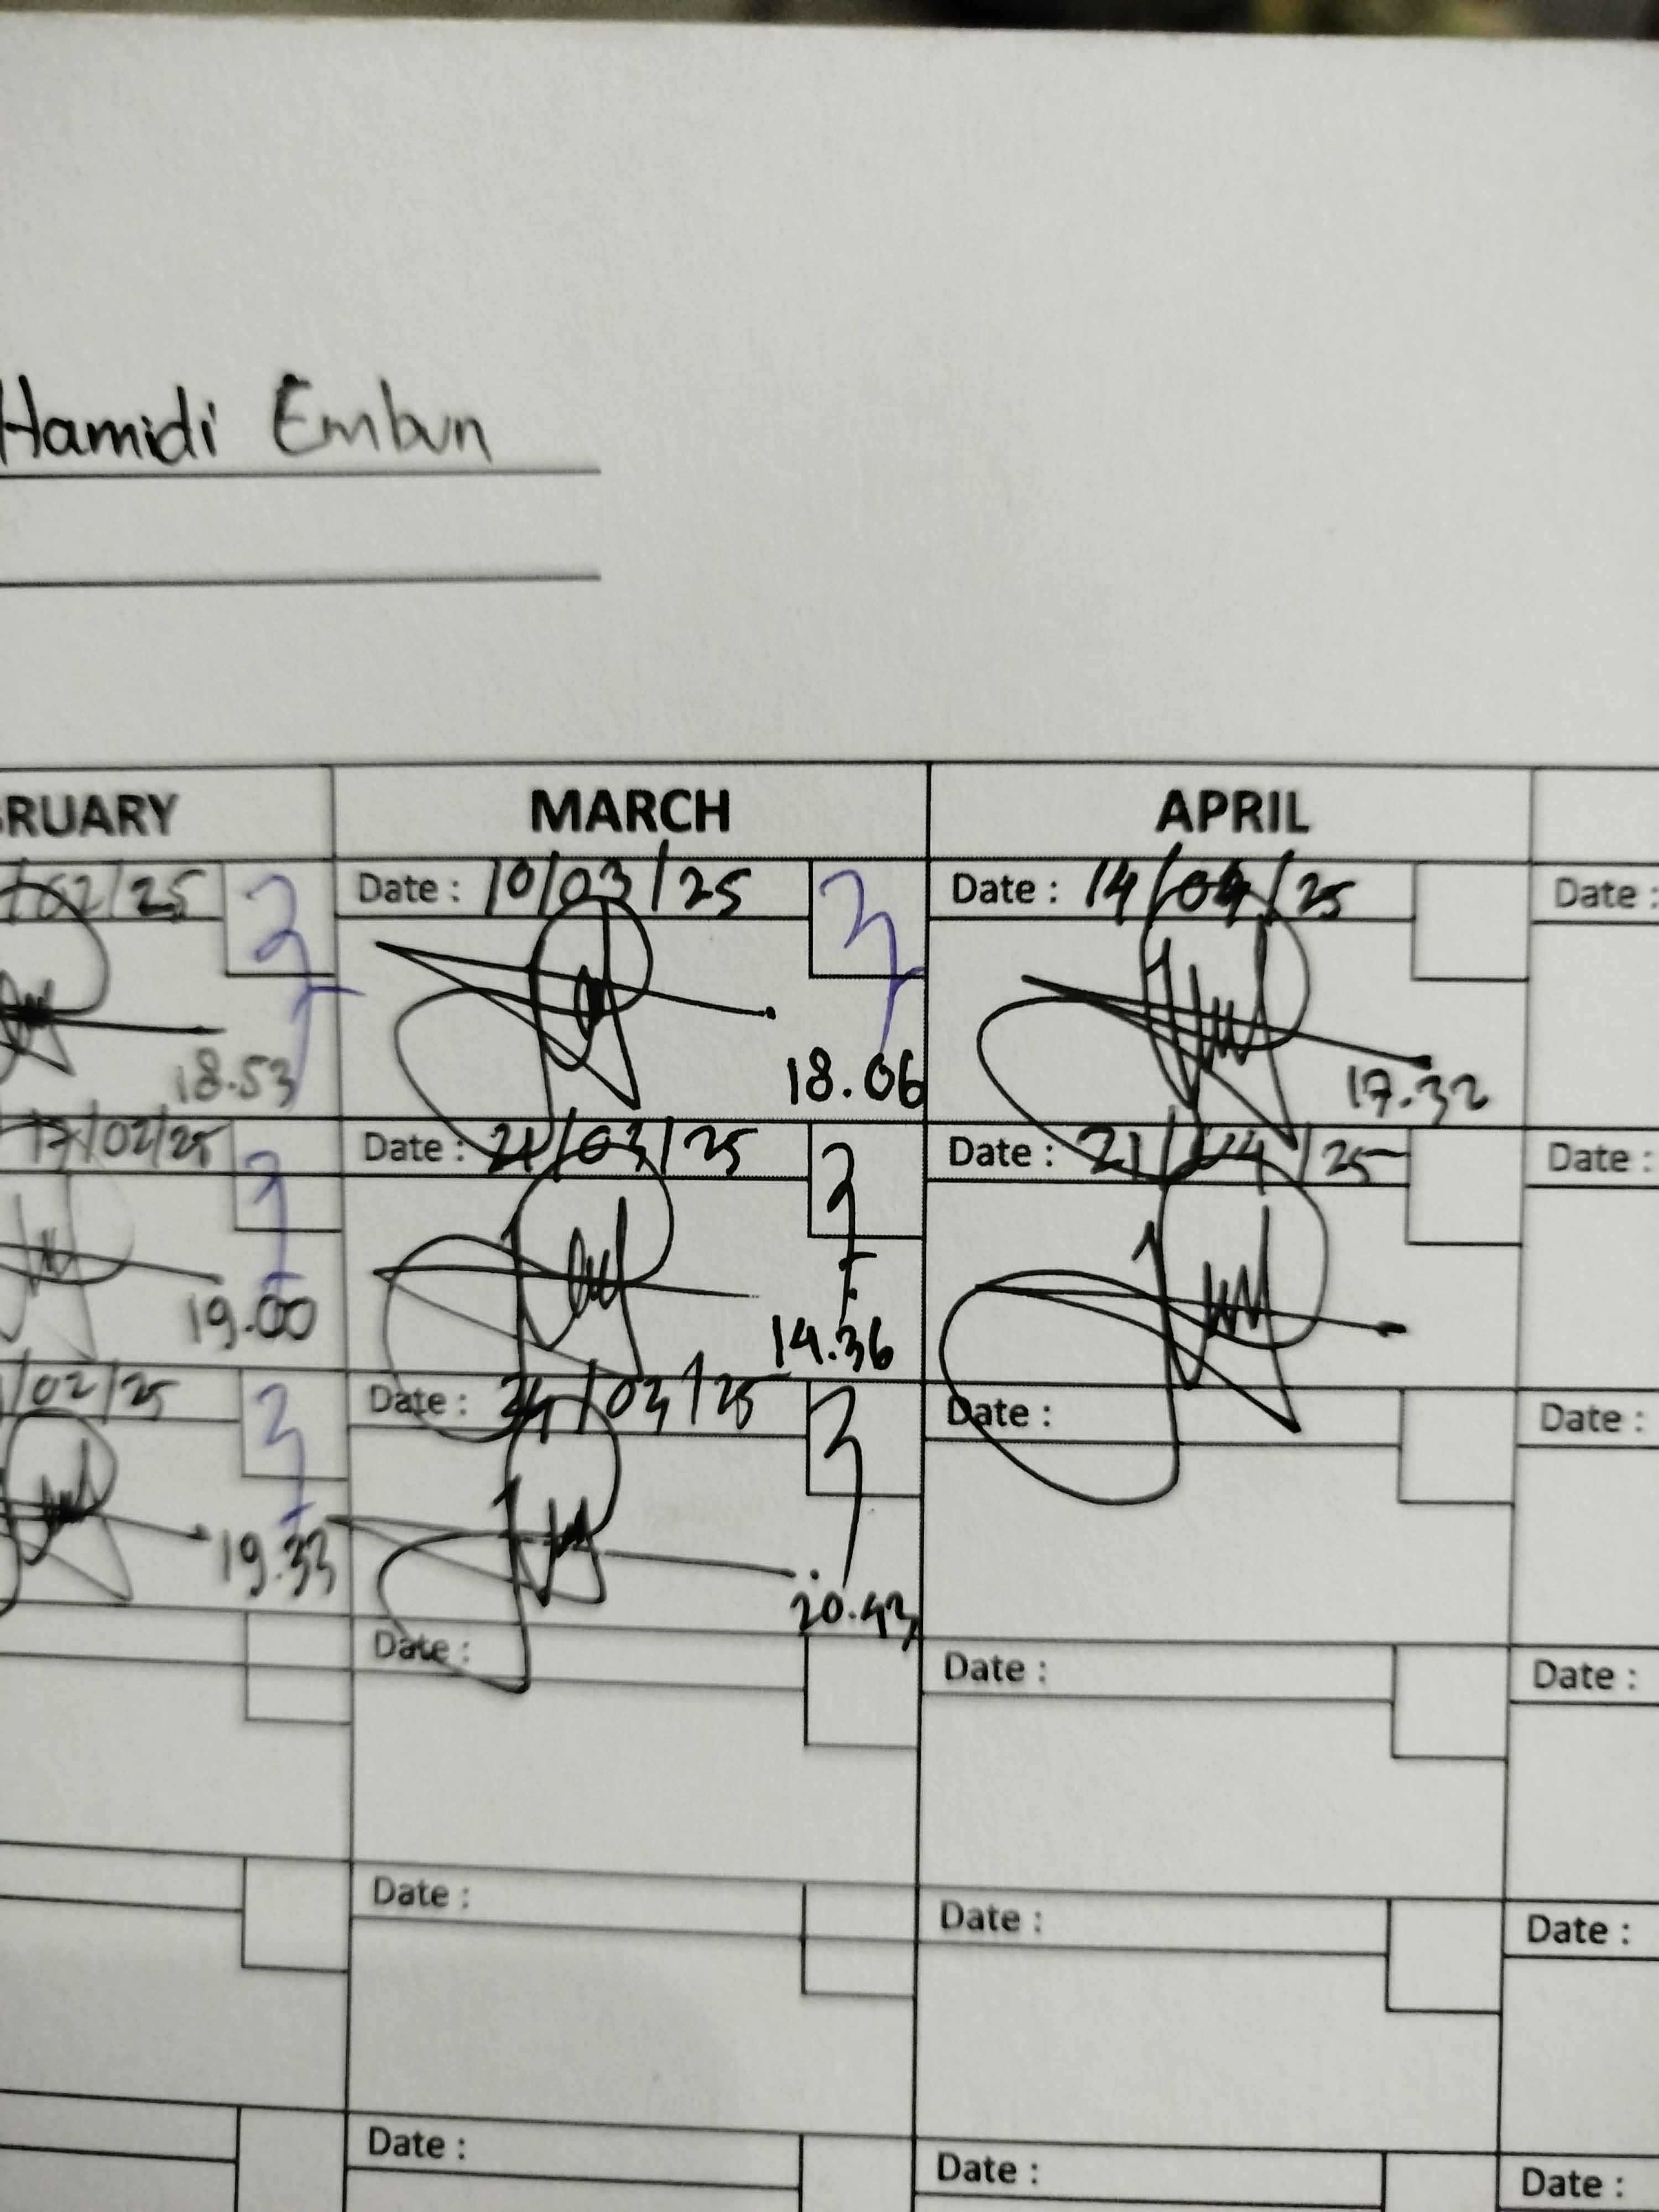 Hamidi Embun
BRUARY MARCH APRIL
/02/25 Date : 10/03/25 Date : 14/04/25 Date :
18.53 18.06 17.32
17/02/25 Date : 21/03/25 Date : 21/04/25 Date :
19.00 14.36
/02/25 Date : 24/03/25 Date : Date :
19.33 20.43
Date : Date : Date :
Date : Date : Date :
Date : Date : Date :